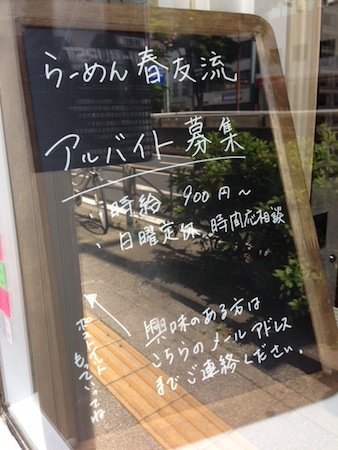 らーめん 春友流
アルバイト募集
、時給 900円〜
、日曜定休、時間応相談
興味のある方は
こちらのメールアドレス
までご連絡ください。
もっていってね